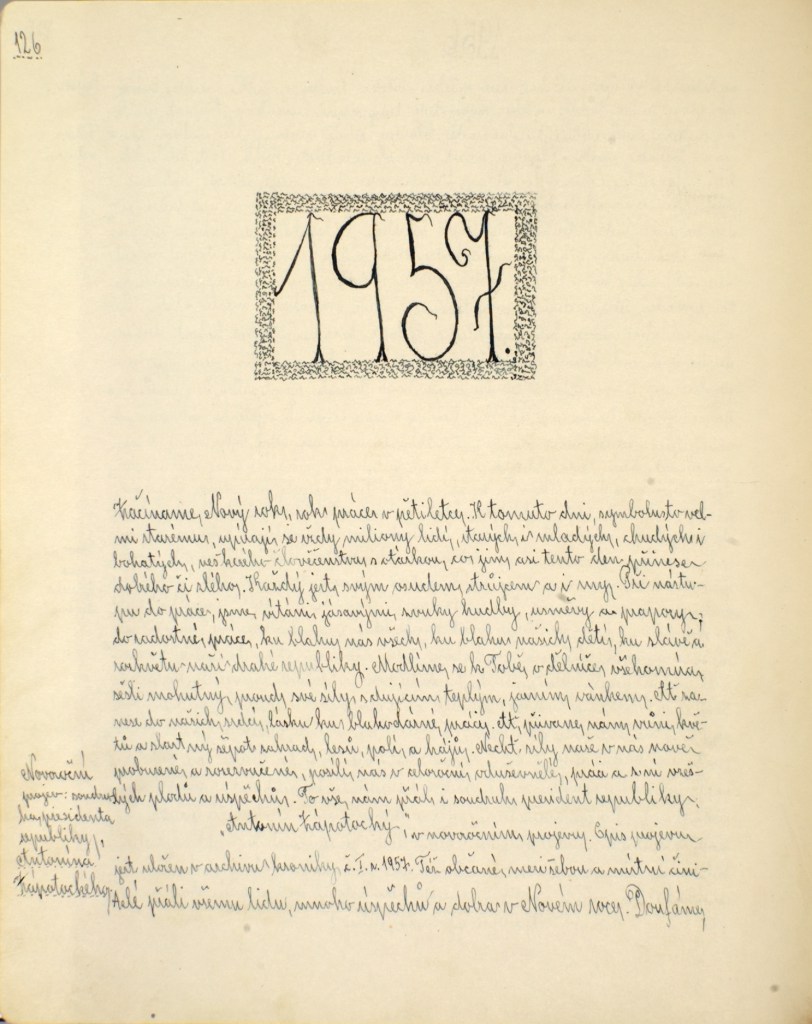 126
1957.
Začíname, Nový rok, rok práce v pětiletce. K tomuto dni, symbolu sto vel-
mi starému, upínají se vždy miliony lidí, starých i mladých, chudých i
bohatých, veškerého člověčenstva s otázkou, co jim, asi tento den, přinese
dobrého či zlého. Každý jest, svým osudem, strůjcem a i my. Při nástu-
pu do práce, jsme, vítáni, jásavými, zvuky hudby, úsměvy a prapory,
do radostné, práce, ku blahu nás všech, ku blahu našich, dětí, ku slávě a
rozkvětu naší drahé republiky. Modlíme, se k Tobě, dělníče, všehomíra,
sešli mohutný, proud, své síly, s dujícím teplým, jarním, vánkem. Ať za-
nese do našich, srdcí, lásku ku blahodárné, práci. Ať, přivane, nám, vůni, kvě-
tů a šepot zahrad, lesů, polí, a hájů. Nechť síly naše v nás nově
probuzené, a posílí, nás v celoroční, práci a s ní vzeš-
lých plodů a úspěchů. To vše, nám přál, i soudruh, president republiky,
„Antonín Zápotocký", v novoročním projevu. Opis projevu
jest uložen v archivu kroniky č. I. r. 1957. Též občané, mezi sebou a místní čini-
telé přáli všemu lidu, mnoho úspěchů a dobra v Novém roce. Doufáme,
Novoroční
projev: soudru-
ha, presidenta
republiky,
Antonína
Zápotockého,